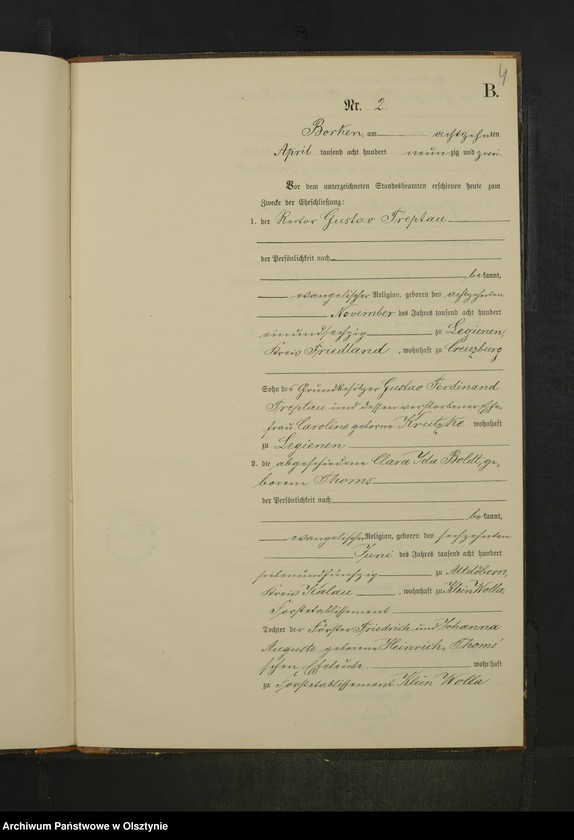 4
B.
Nr. 2.
Borken, am achtzehnten
April tausend acht hundert neunzig und zwei
Vor dem unterzeichneten Standesbeamten erschienen heute zum
Zwecke der Eheschließung:
1. der Rector Gustav Treptau
der Persönlichkeit nach
bekannt,
evangelischer Religion, geboren den achtzehnten
November des Jahres tausend acht hundert
einundsechzig zu Legienen,
Kreis Friedland, wohnhaft zu Creuzburg
Sohn des Grundbesitzer Gustav Ferdinand
Treptau und dessen verstorbener Ehe-
frau Caroline geborene Krutzke wohnhaft
zu Legienen
2. die abgeschiedene Clara Ida Boldt, ge-
borene Thoms
der Persönlichkeit nach
bekannt,
evangelischer Religion, geboren den sechzehnten
Juni des Jahres tausend acht hundert
siebenundfünfzig zu Altdöbern,
Kreis Kalau, wohnhaft zu Klein Wolla
Forstetablissement
Tochter der Förster Friedrich und Johanna
Auguste geborene Heinrich, Thoms'
schen Eheleute. wohnhaft
zu Forstetablissement Klein Wolla
Archiwum Państwowe w Olsztynie